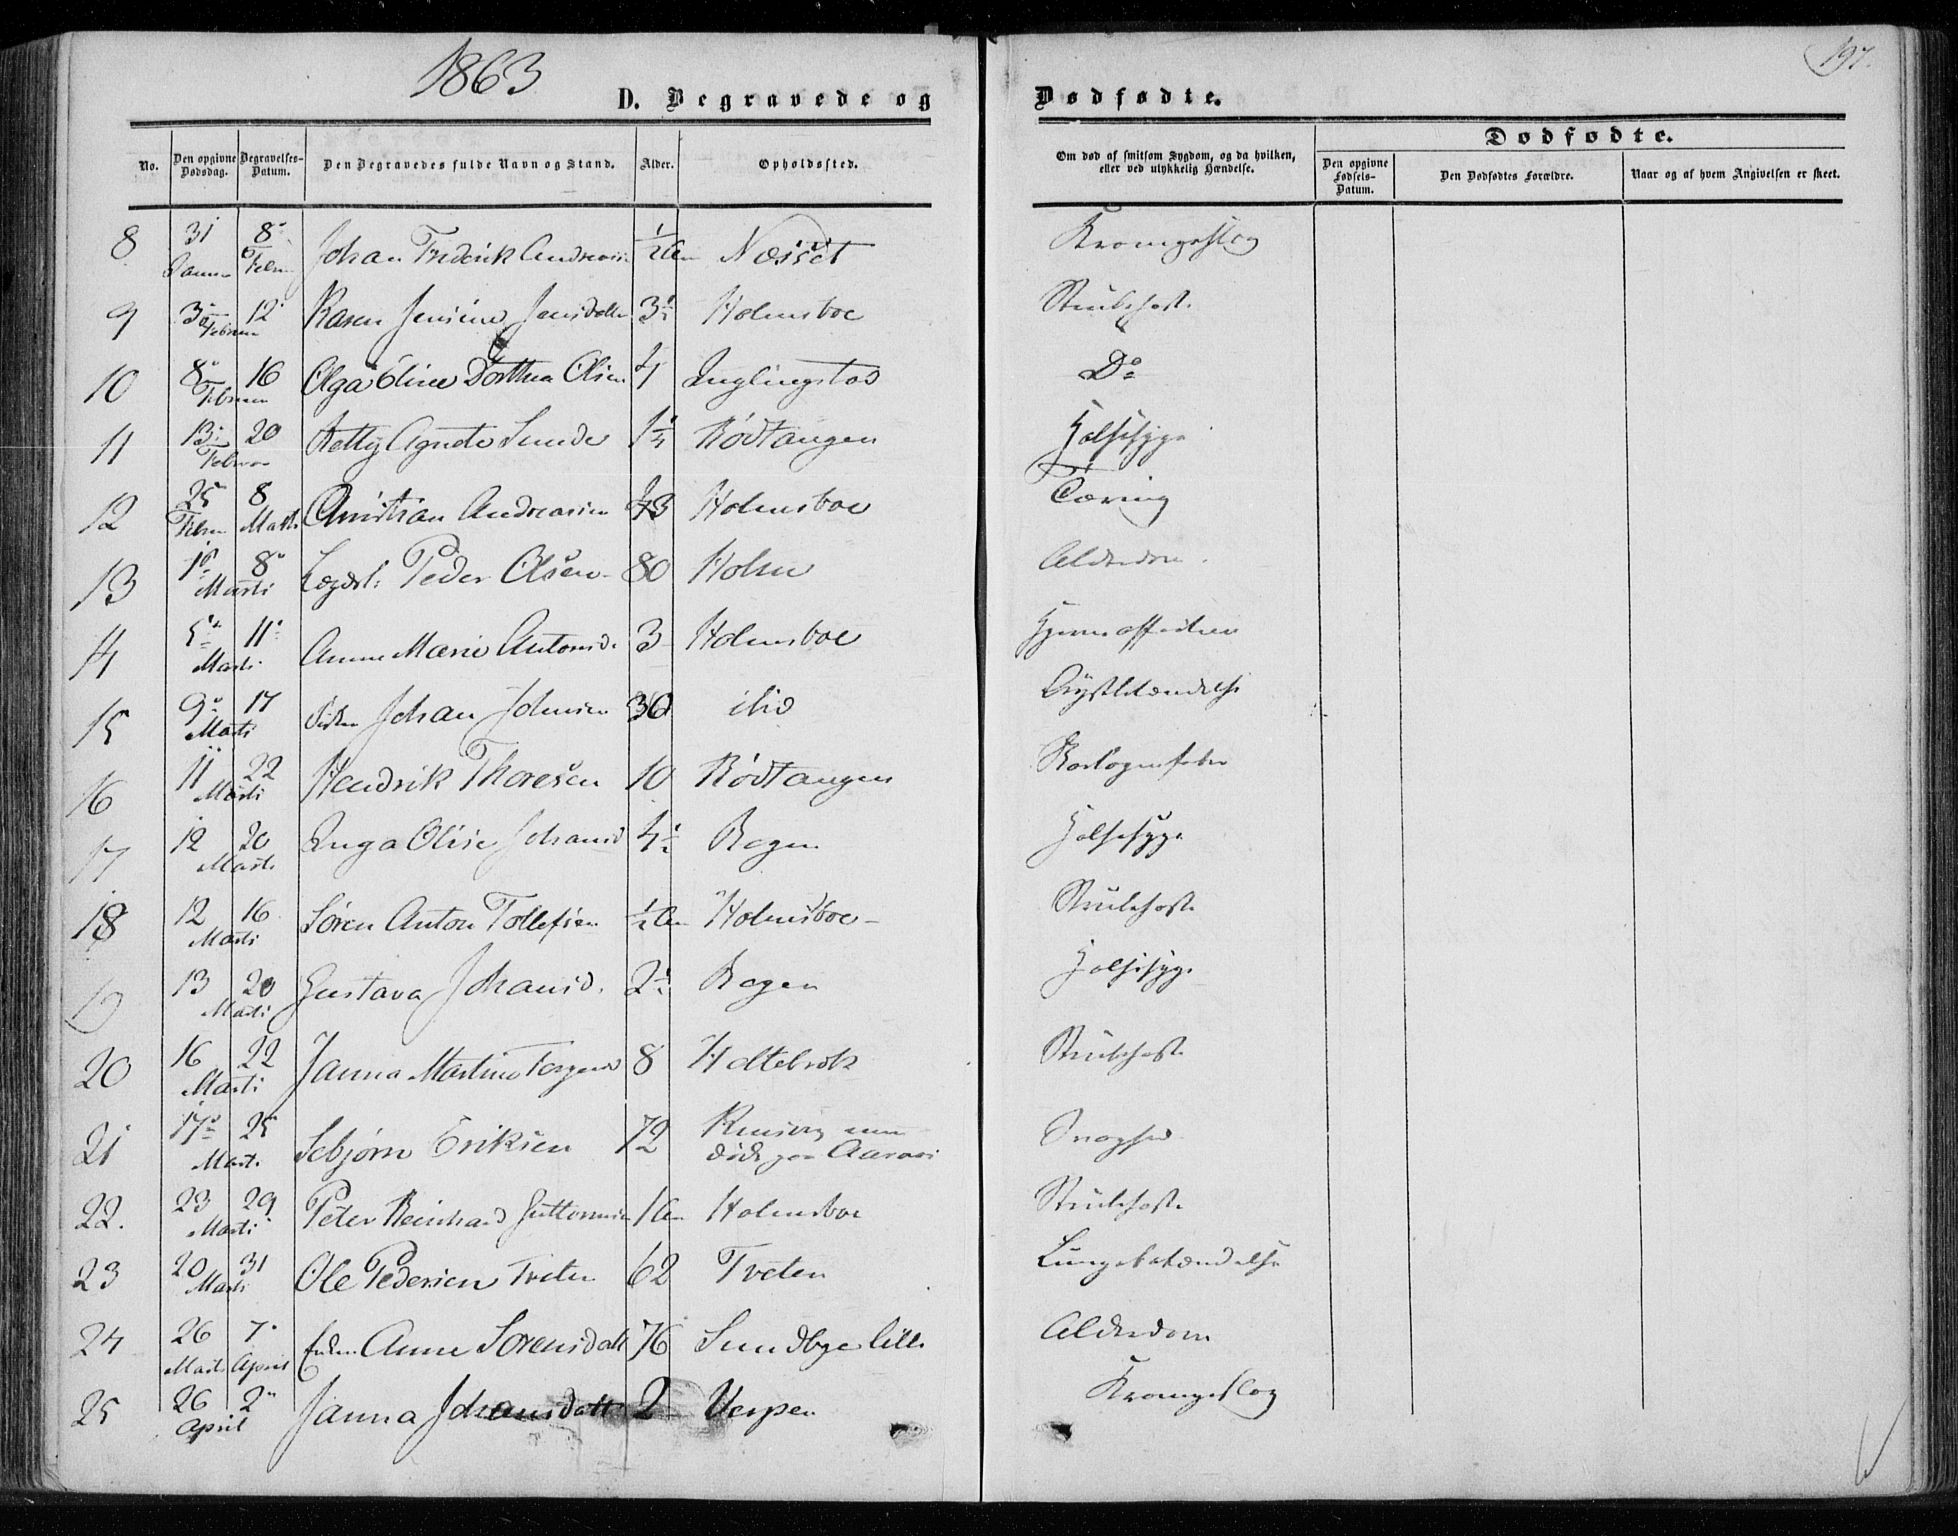 1863
197.
D. Begravede og Dødfødte.
No.
Den opgivne Dødsdag.
Begravelses-Datum.
Den Begravedes fulde Navn og Stand.
Alder.
Opholdssted.
Om død af smitsom Sygdom, og da hvilken, eller ved ulykkelig Hændelse.
Dødfødte.
Den opgivne Fødsels-Datum.
Den Dødfødtes Forældre.
Naar og af hvem Angivelsen er skeet.
8 31 Januar 8 Febr Johan Fredrik Andreas 1/2 Næsset Krampeslag
9 3 Februar 12 Karen Jensine Jensdatter 3 1/2 Holmsboe Strubehoste
10 8 Februar 16 Olga Oline Dorthea Olsen 4 Inglingstad Do
11 13 Februar 20 Hetty Agnete Sunde 1 1/4 Rödtangen Halssyge
12 25 Febr 8 Marts Christian Andreasen 43 Holmsboe Tæring
13 1 Marts 8 Lægdsl: Peder Olsen 80 Holm Alderdom
14 5 Marts 11 Anne Marie Antonsd. 3 Holmsboe
15 9 Marts 17 Johan Johnsen 30 ibid
16 11 Marts 22 Hendrik Thoresen 10 Rödtangen Skarlagensfeber
17 12 Marts 20 Inga Olise Johansd 4 1/2 Bogen Halssyge
18 12 Marts 16 Sören Anton Tollefsen 1/2 Holmsboe Strubehoste
19 13 Marts 20 Gustava Johansd. 2 1/2 Bogen Halssyge
20 16 Marts 22 Janna Martine 8 Holtebræk Strubehoste
21 17 Marts 25 Sebjörn Eriksen 72
döde paa Svaghed
22. 23 Marts 29 Peter Reinhard Guttormsen 1 Holmsboe Strubehoste
23 20 Marts 31 Ole Pedersen Treten 62 Tveten Lungebetændelse
24 26 Marts 7 April Enken Anne Sorensdatt 76 Sundbye lille Alderdom
25 26 April 2 Janna Johansdatt 2 Verpen Krampeslag